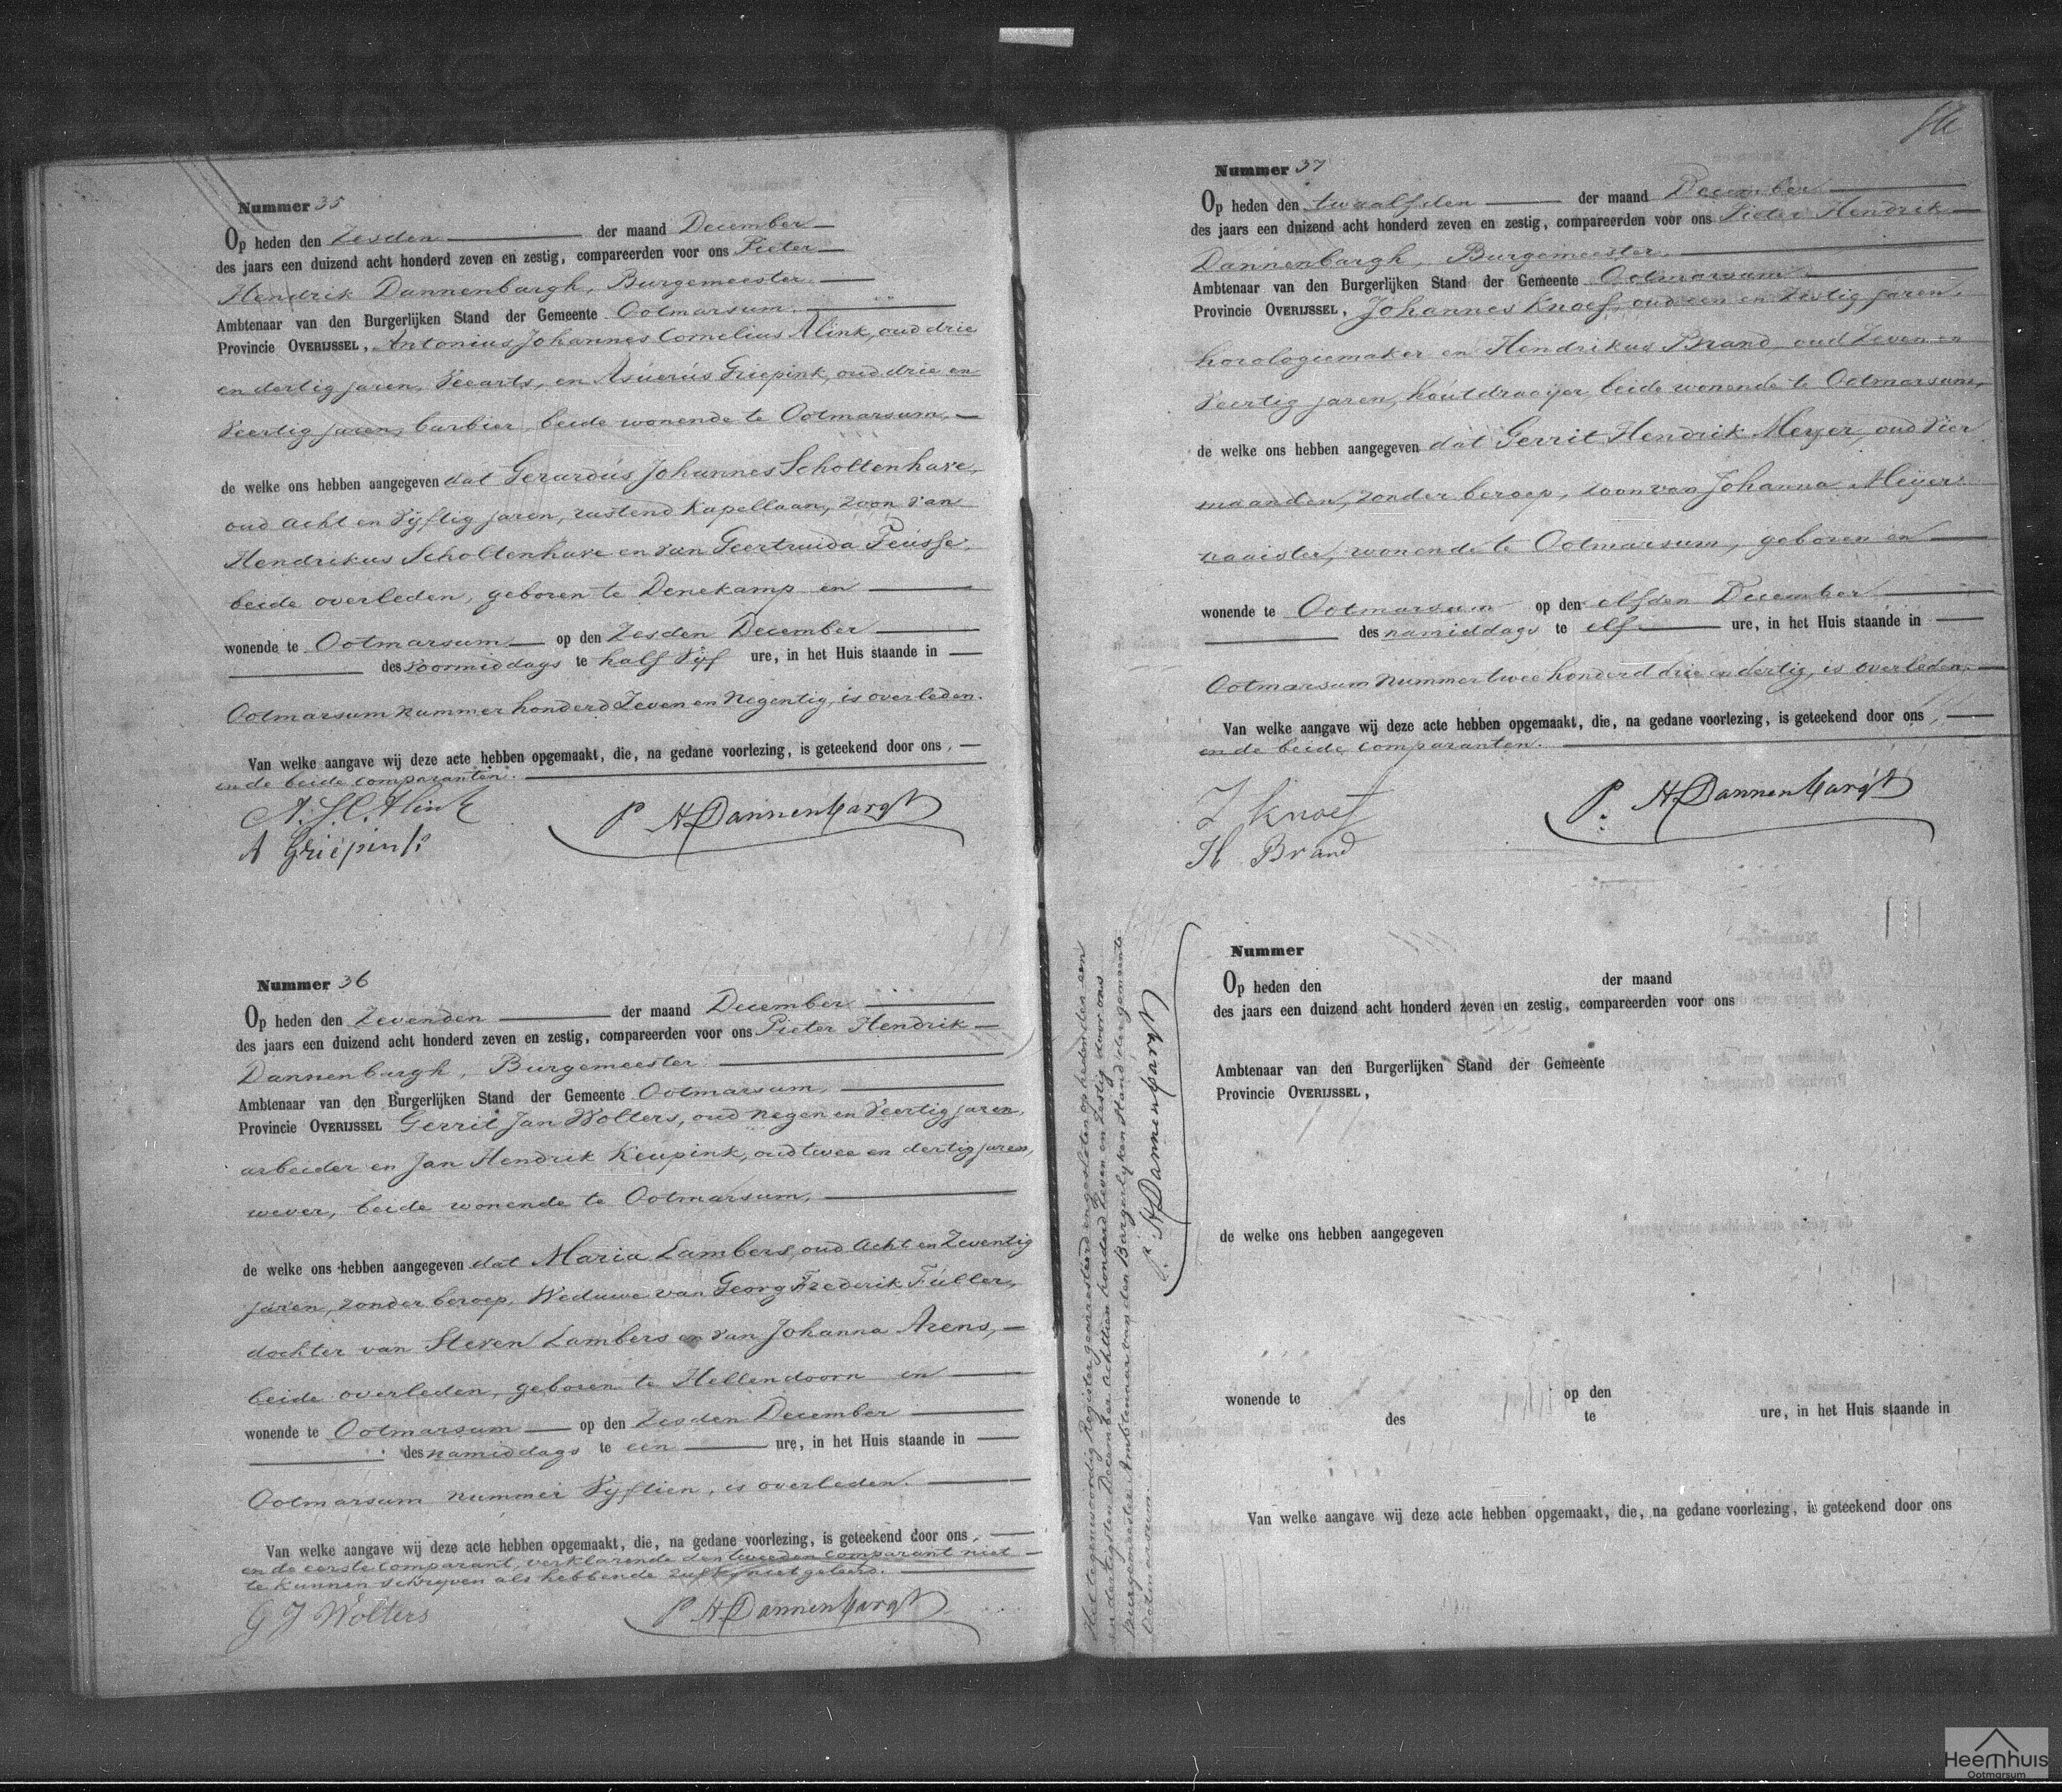 Nummer 35
Op heden den Zesden der maand December
des jaars een duizend acht honderd zeven en zestig, compareerden voor ons Pieter
Hendrik Dannenbargh, Burgemeester
Ambtenaar van den Burgerlijken Stand der Gemeente Ootmarsum.
Provincie OVERIJSSEL, Antonius Johannes Cornelius Alink, oud drie
en dertig jaren, Veearts, en Asuerús Griepink, oud drie en
Veertig jaren, barbier, beide wonende te Ootmarsum,
de welke ons hebben aangegeven dat Gerardús Johannes Scholtenhave,
oud acht en Vijftig jaren, rustend Kapellaan, zoon van
Hendrikus Scholtenhave en van Geertruida
beide overleden, geboren te Denekamp en
wonende te Ootmarsum op den Zesden December
des voormiddags te half Vijf ure, in het Huis staande in
Ootmarsum nummer honderd Zeven en Negentig, is overleden.
Van welke aangave wij deze acte hebben opgemaakt, die, na gedane voorlezing, is geteekend door ons,
en de beide comparanten.
A. J. C. Alink
P H Dannenbargh
A Griepink
Nummer 36
Op heden den Zevenden der maand December
des jaars een duizend acht honderd zeven en zestig, compareerden voor ons Pieter Hendrik
Dannenbargh, Burgemeester
Ambtenaar van den Burgerlijken Stand der Gemeente Ootmarsum,
Provincie OVERIJSSEL Gerrit Jan Wolters, oud negen en Veertig jaren,
arbeider en Jan Hendrik Keupink, oud twee en dertig jaren,
wever, beide wonende te Ootmarsum,
de welke ons hebben aangegeven dat Maria Lambers, oud acht en Zeventig
jaren, zonder beroep, Weduwe van Georg Frederik Túller,
dochter van Steven Lambers en van Johanna Arens,
beide overleden, geboren te Hellendoorn en
wonende te Ootmarsum op den Zesden December
des namiddags te een ure, in het Huis staande in
Ootmarsum nummer Vijftien, is overleden.
Van welke aangave wij deze acte hebben opgemaakt, die, na gedane voorlezing, is geteekend door ons,
en de eerste comparant, verklarende den tweeden comparant niet
te kunnen schrijven als hebbende zulks niet geleerd.
G J Wolters
P H Dannenbargh
Nummer 37
Op heden den twaalfden der maand December
des jaars een duizend acht honderd zeven en zestig, compareerden voor ons Pieter Hendrik
Dannenbargh, Burgemeester
Ambtenaar van den Burgerlijken Stand der Gemeente Ootmarsum
Provincie OVERIJSSEL, Johannes Knoef, oud een en zestig jaren,
horologiemaker en Hendrikus Brand, oud Zeven en
Veertig jaren, houtdraaijer, beide wonende te Ootmarsum,
de welke ons hebben aangegeven dat Gerrit Hendrik Meyer, oud vier
maanden, zonder beroep, zoon van Johanna Meijer
naaister, wonende te Ootmarsum, geboren en
wonende te Ootmarsum op den elfden December
des namiddags te elf ure, in het Huis staande in
Ootmarsum nummer twee honderd drie en dertig, is overleden.
Van welke aangave wij deze acte hebben opgemaakt, die, na gedane voorlezing, is geteekend door ons,
en de beide comparanten.
J Knoef
P. H Dannenbargh
H Brand
Het tegenwoordig Register gearresteerd en gesloten op heden den een
en dertigsten December achttien honderd Zeven en Zestig door ons
Burgemeester Ambtenaar van den Burgerlijken Stand der gemeente
Ootmarsum.
P. H Dannenbargh
Nummer
Op heden den der maand
des jaars een duizend acht honderd zeven en zestig, compareerden voor ons
Ambtenaar van den Burgerlijken Stand der Gemeente
Provincie OVERIJSSEL,
de welke ons hebben aangegeven
wonende te op den
des te ure, in het Huis staande in
Van welke aangave wij deze acte hebben opgemaakt, die, na gedane voorlezing, is geteekend door ons
Heemhuis
Ootmarsum